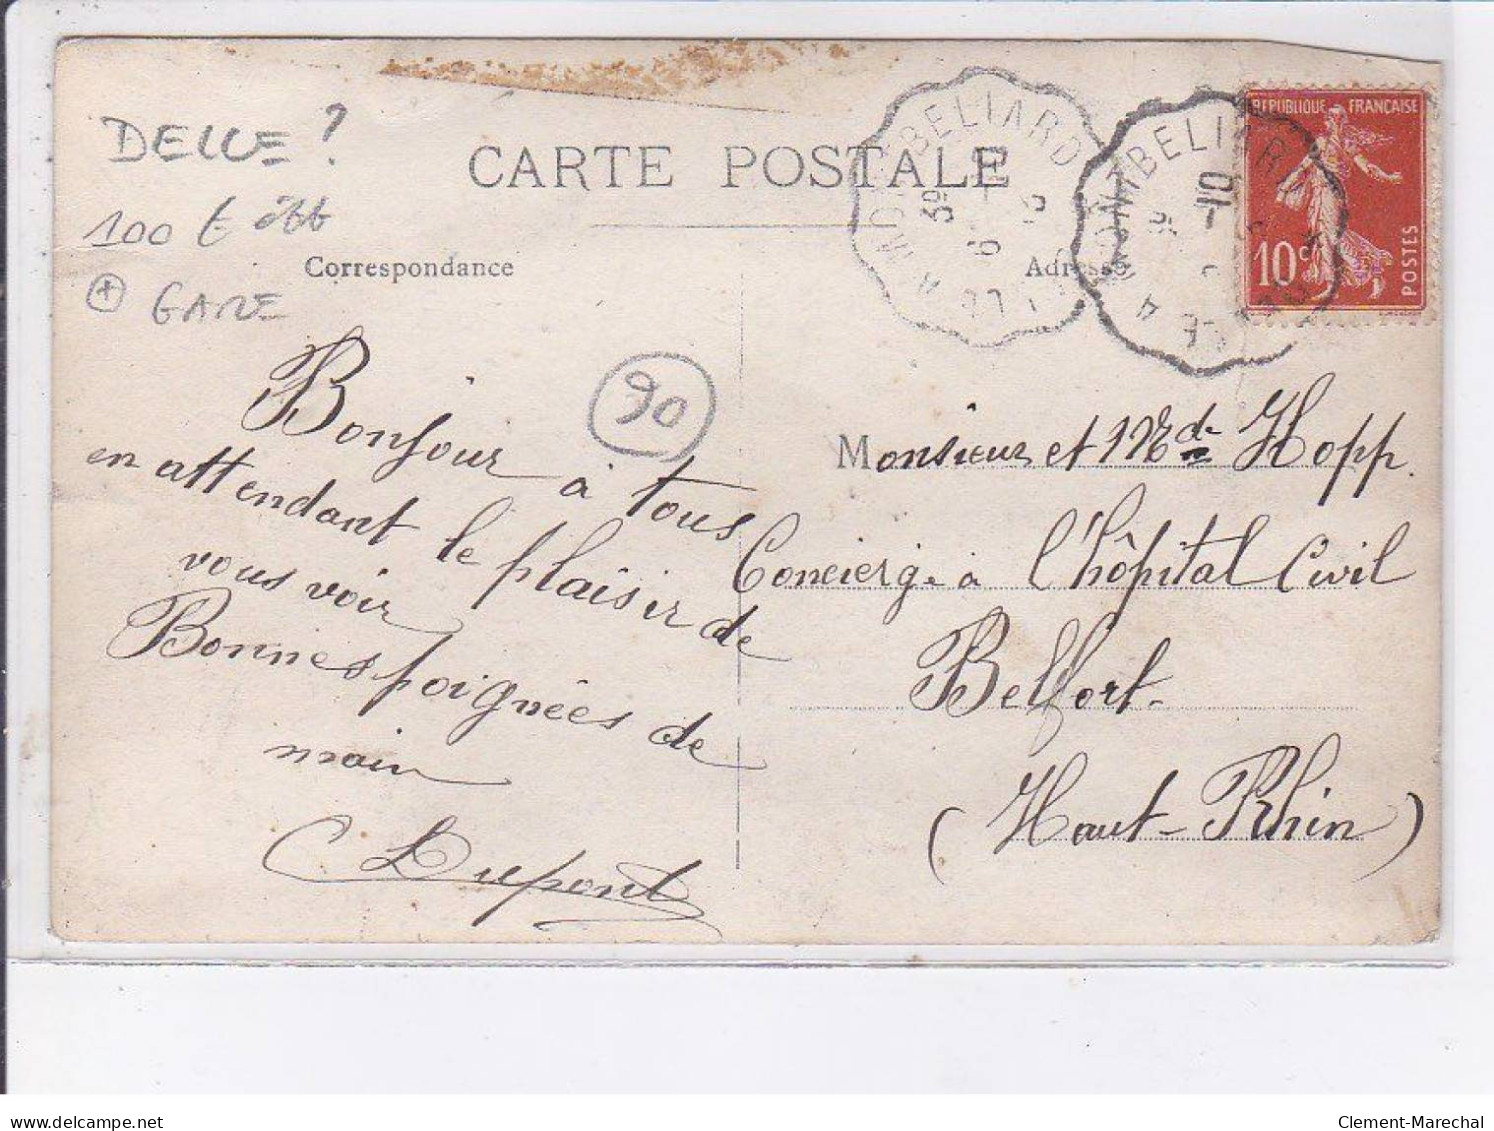 DELLE ?
100 €
GARE
CARTE POSTALE
Correspondance
Adresse
90
Bonjour à tous
en attendant le plaisir de
vous voir
Bonnes poignées de
main
Dupont
Monsieur et Mde Hopp.
Concierge à l'hôpital Civil
Belfort.
(Haut-Rhin)
REPUBLIQUE FRANÇAISE
10 c
POSTES
DELLE A MONTBELIARD
3º
DELLE A MONTBELIARD
10
delcampe.net
Clement-Marechal